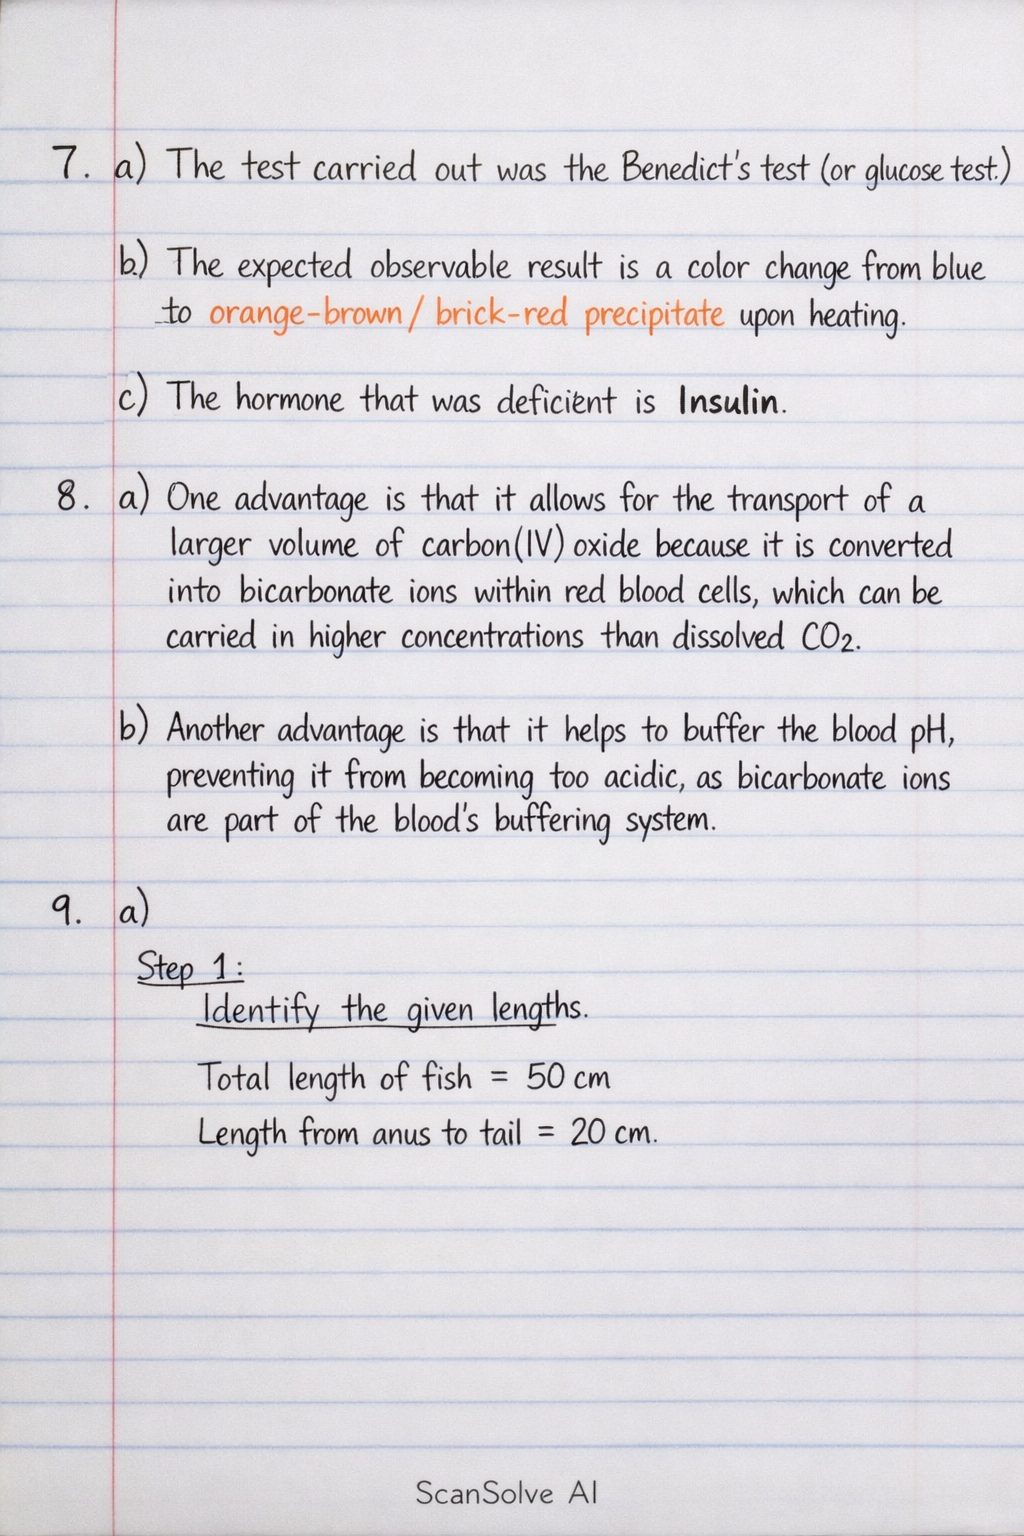 7. a) The test carried out was the Benedict's test (or glucose test.)
b) The expected observable result is a color change from blue
to orange-brown / brick-red precipitate upon heating.
c) The hormone that was deficient is Insulin.
8. a) One advantage is that it allows for the transport of a
larger volume of carbon(IV) oxide because it is converted
into bicarbonate ions within red blood cells, which can be
carried in higher concentrations than dissolved CO₂.
b) Another advantage is that it helps to buffer the blood pH,
preventing it from becoming too acidic, as bicarbonate ions
are part of the blood's buffering system.
9. a)
Step 1:
Identify the given lengths.
Total length of fish = 50 cm
Length from anus to tail = 20 cm.
ScanSolve AI